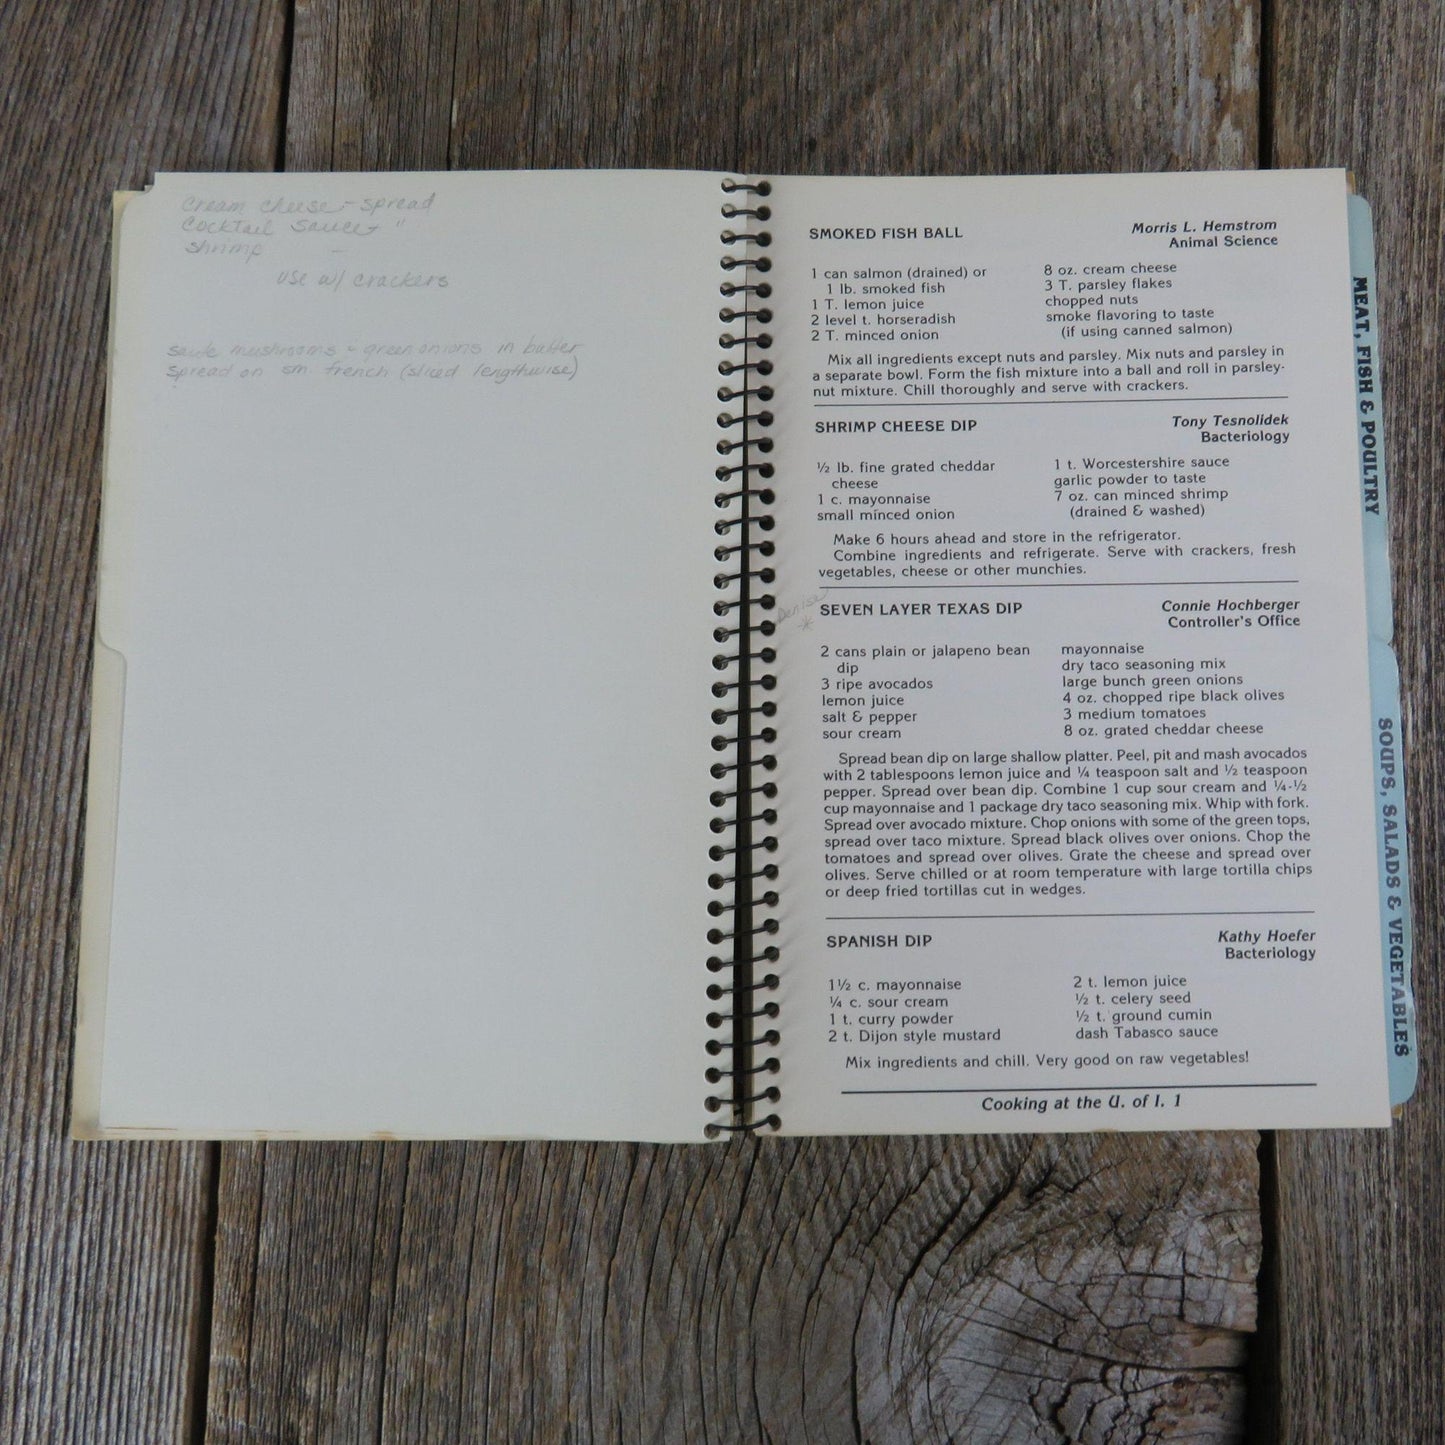 Cream Cheese - spread
Cocktail Sauce - "
Shrimp -
use w/ crackers
saute mushrooms - green onions in butter
spread on sm french (sliced lengthwise)
SMOKED FISH BALL
Morris L. Hemstrom
Animal Science
1 can salmon (drained) or
1 lb. smoked fish
1 T. lemon juice
2 level t. horseradish
2 T. minced onion
8 oz. cream cheese
3 T. parsley flakes
chopped nuts
smoke flavoring to taste
(if using canned salmon)
Mix all ingredients except nuts and parsley. Mix nuts and parsley in
a separate bowl. Form the fish mixture into a ball and roll in parsley-
nut mixture. Chill thoroughly and serve with crackers.
SHRIMP CHEESE DIP
Tony Tesnolidek
Bacteriology
½ lb. fine grated cheddar
cheese
1 c. mayonnaise
small minced onion
1 t. Worcestershire sauce
garlic powder to taste
7 oz. can minced shrimp
(drained & washed)
Make 6 hours ahead and store in the refrigerator.
Combine ingredients and refrigerate. Serve with crackers, fresh
vegetables, cheese or other munchies.
Denise
*
SEVEN LAYER TEXAS DIP
Connie Hochberger
Controller's Office
2 cans plain or jalapeno bean
dip
3 ripe avocados
lemon juice
salt & pepper
sour cream
mayonnaise
dry taco seasoning mix
large bunch green onions
4 oz. chopped ripe black olives
3 medium tomatoes
8 oz. grated cheddar cheese
Spread bean dip on large shallow platter. Peel, pit and mash avocados
with 2 tablespoons lemon juice and ¼ teaspoon salt and ½ teaspoon
pepper. Spread over bean dip. Combine 1 cup sour cream and ¼-½
cup mayonnaise and 1 package dry taco seasoning mix. Whip with fork.
Spread over avocado mixture. Chop onions with some of the green tops,
spread over taco mixture. Spread black olives over onions. Chop the
tomatoes and spread over olives. Grate the cheese and spread over
olives. Serve chilled or at room temperature with large tortilla chips
or deep fried tortillas cut in wedges.
SPANISH DIP
Kathy Hoefer
Bacteriology
1½ c. mayonnaise
¼ c. sour cream
1 t. curry powder
2 t. Dijon style mustard
2 t. lemon juice
½ t. celery seed
½ t. ground cumin
dash Tabasco sauce
Mix ingredients and chill. Very good on raw vegetables!
Cooking at the U. of I. 1
MEAT, FISH & POULTRY
SOUPS, SALADS & VEGETABLES